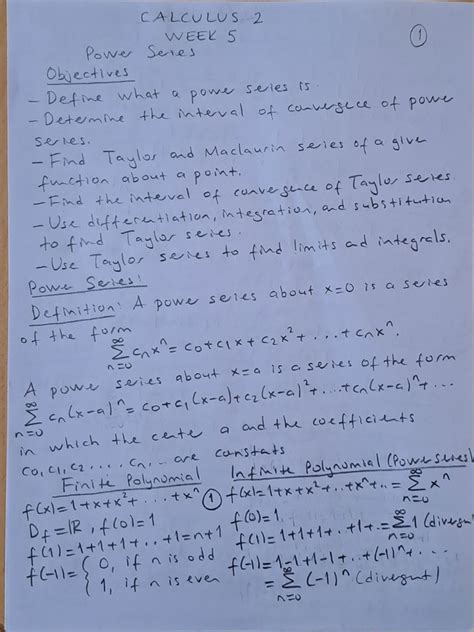 CALCULUS 2
WEEK 5
①
Power Series
Objectives
- Define what a power series is.
- Determine the interval of convergece of power
series.
- Find Taylor and Maclaurin series of a given
function about a point.
- Find the interval of convergence of Taylor series
- Use differentiation, integration, and substitution
to find Taylor series.
- Use Taylor series to find limits ad integrals.
Power Series:
Definition: A power series about x=0 is a series
of the form
∞∑n=0 cₙxⁿ = c₀+c₁x+c₂x²+...+cₙxⁿ.
A power series about x=a is a series of the form
∞∑n=0 cₙ(x-a)ⁿ = c₀+c₁(x-a)+c₂(x-a)²+...+cₙ(x-a)ⁿ+...
in which the center a and the coefficients
c₀,c₁,c₂....cₙ... are constats
Finite Polynomial
f(x)=1+x+x²+...+xⁿ
D_f=ℝ, f(0)=1
f(1)=1+1+1+..+1=n+1
f(-1)= { 0, if n is odd
1, if n is even
Infinite Polynomial (Power Series)
① f(x)=1+x+x²+..+xⁿ+..= ∞∑n=0 xⁿ
f(0)=1,
f(1)=1+1+1+..+1+..= ∞∑n=0 1 (divergent)
f(-1)=1-1+1-1+..+(-1)ⁿ+...
= ∞∑n=0 (-1)ⁿ (divergent)